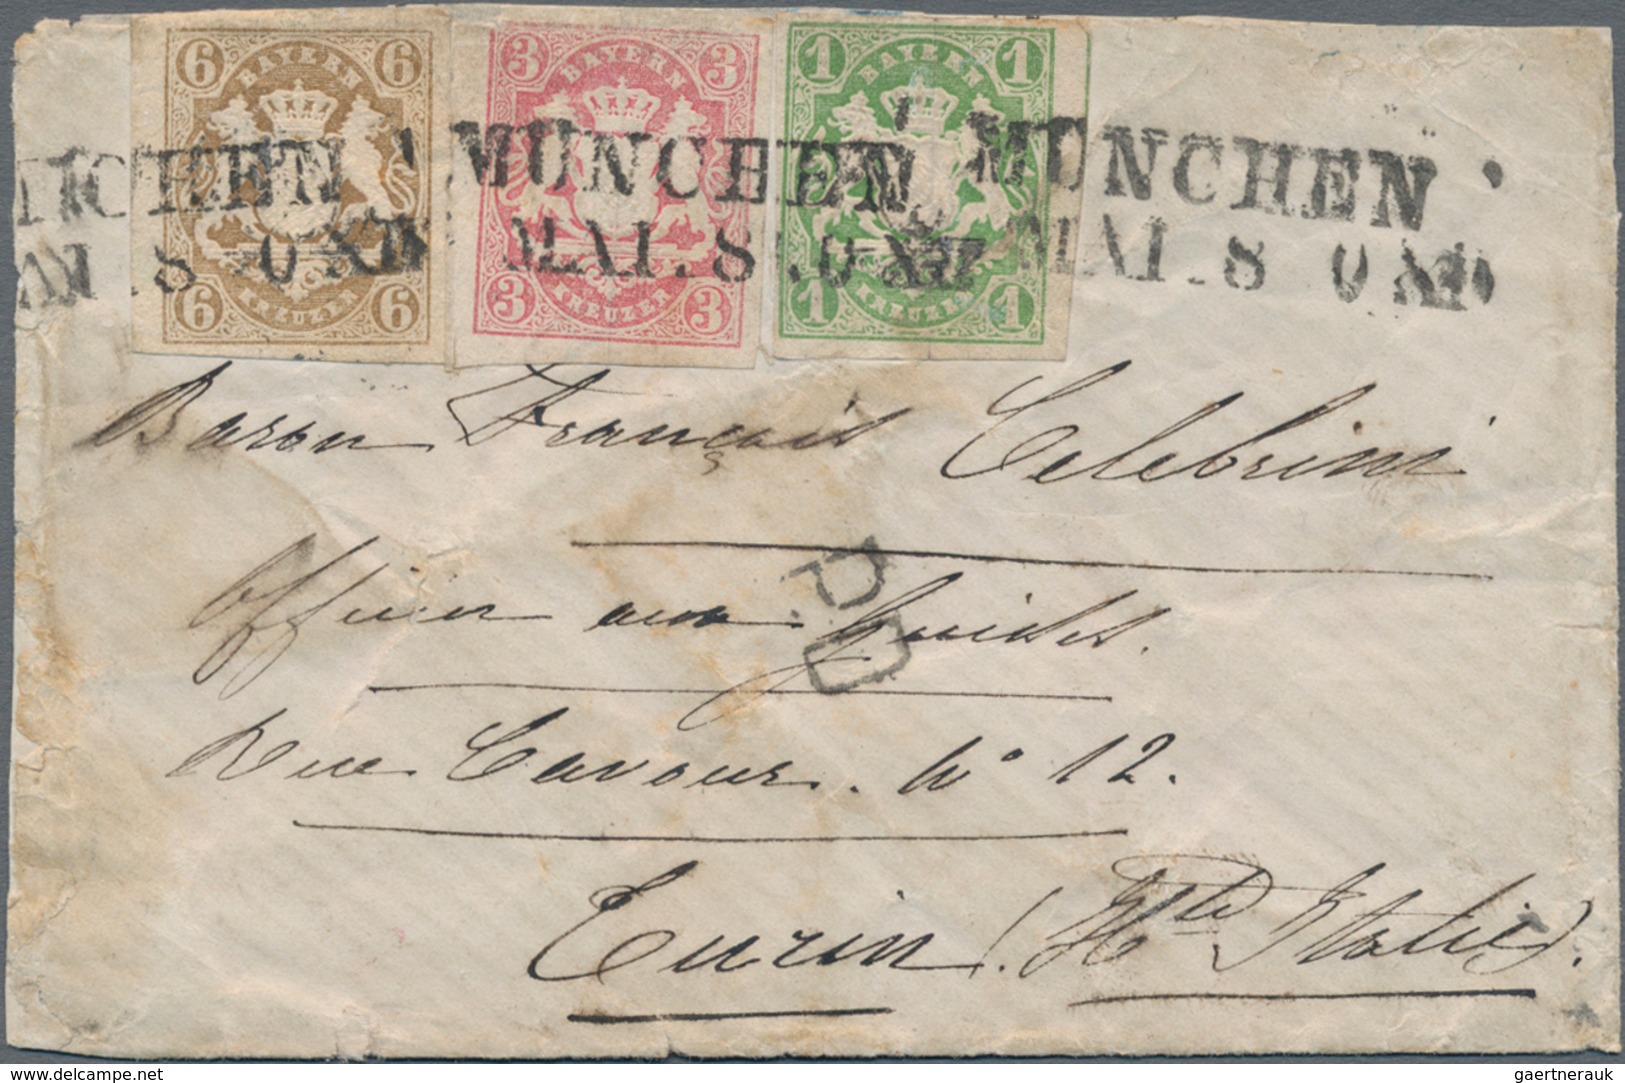 6 BAYERN 6 3 BAYERN 3 1 BAYERN 1
MÜNCHEN MÜNCHEN
MAI. 8 MAI. 8
6 KREUZER 6 3 KREUZER 3 1 KREUZER 1
Baron François Celebrini
Officier aux Guides.
P.D
Rue Cavour. No 12.
Turin. (Hte Italie).
© www.delcampe.net
gaertnerauk